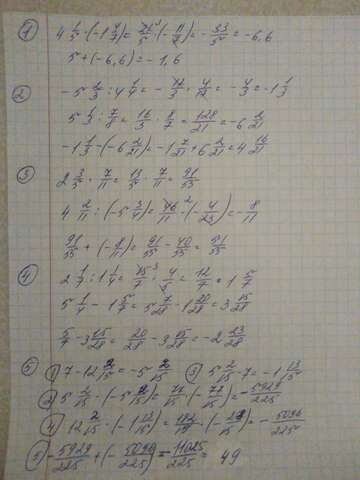 ① 4 1/5 · (-1 4/7) = 21/5 · (-11/7) = -33/5 = -6,6
5 + (-6,6) = -1,6
② -5 1/3 : 4 1/4 = -4/3 = -1 1/3
5 1/3 : 7/8 = 16/3 · 8/7 = 128/21 = -6 2/21
-1 1/3 - (-6 2/21) = -1 7/21 + 6 2/21 = 4 16/21
③ 2 3/5 · 7/11 = 13/5 · 7/11 = 91/55
4 2/11 : (-5 3/4) = 46/11 · (-4/23) = -8/11
91/55 + (-8/11) = 91/55 - 40/55 = 51/55
④ 2 1/7 : 1 1/4 = 15/7 · 4/5 = 12/7 = 1 5/7
5 1/4 - 1 5/7 = 5 7/28 - 1 20/28 = 3 15/28
5/7 - 3 15/28 = 20/28 - 3 15/28 = -2 23/28
⑤ ① 7 - 12 2/15 = -5 2/15 ③ 5 2/15 - 7 = -1 13/15
② 5 2/15 · (-5 2/15) = 77/15 · (-77/15) = -5929/225
④ 12 2/15 · (-1 13/15) = 182/15 · (-28/15) = -5096/225
⑤ -5929/225 + (-5096/225) = -11025/225 = 49